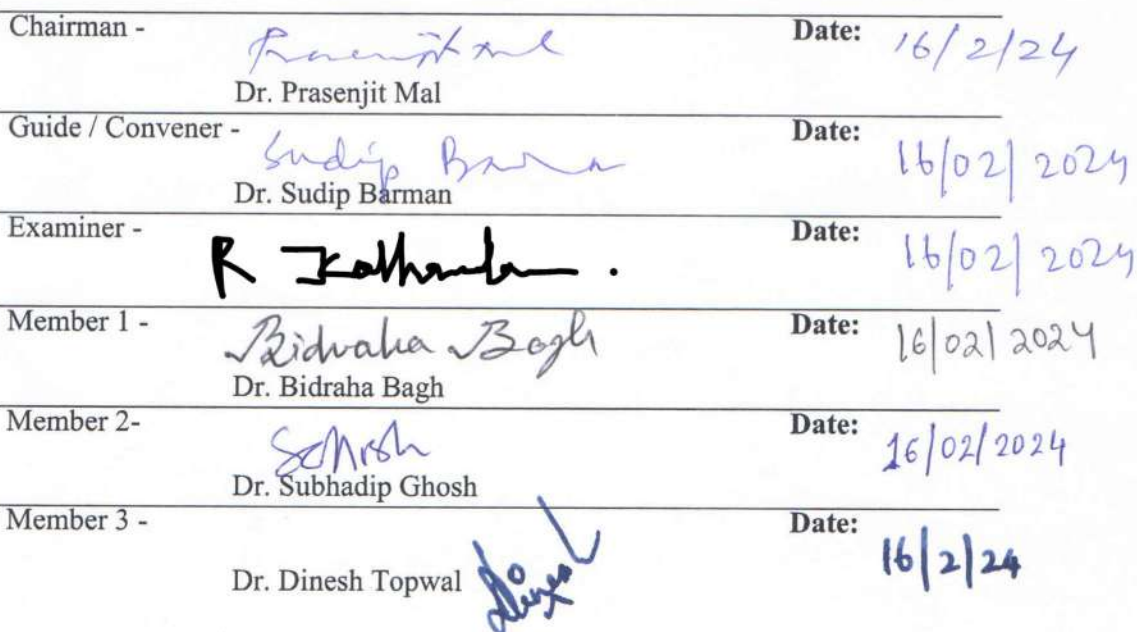 Chairman - Date: 16/2/24
Dr. Prasenjit Mal
Guide / Convener - Sudip Date: 16/02/2024
Dr. Sudip Barman
Examiner - R Date: 16/02/2024
Member 1 - Bidraha Bagh Date: 16/02/2024
Dr. Bidraha Bagh
Member 2- Date: 16/02/2024
Dr. Subhadip Ghosh
Member 3 - Date: 16/2/24
Dr. Dinesh Topwal